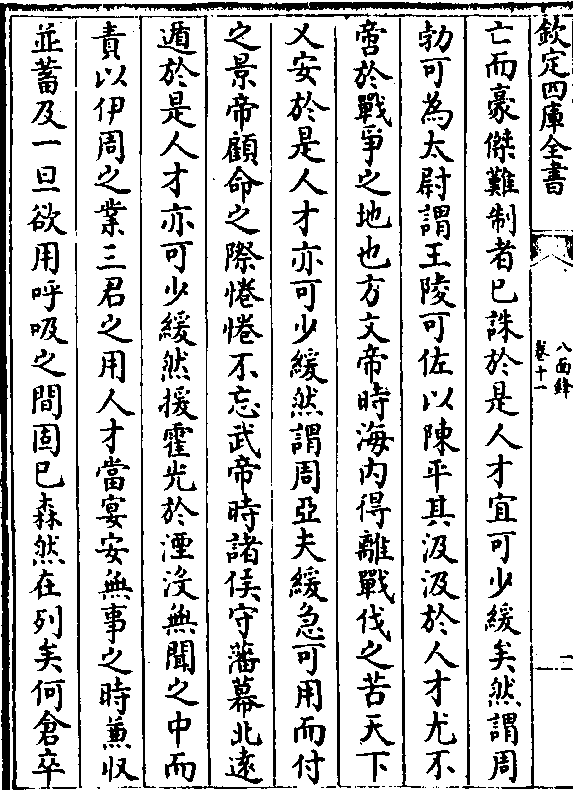 欽定四庫全書
八面鋒
卷十一
亡而豪傑難制者已誅於是人才宜可少緩矣然謂周
勃可為太尉謂王陵可佐以陳平其汲汲於人才尤不
啻於戰爭之地也方文帝時海内得離戰伐之苦天下
乂安於是人才亦可少緩然謂周亞夫緩急可用而付
之景帝顧命之際惓惓不忘武帝時諸侯守藩幕北逺
遁於是人才亦可少緩然援霍光於湮沒無聞之中而
責以伊周之業三君之用人才當宴安無事之時兼收
並蓄及一旦欲用呼吸之間固已森然在列矣何倉卒